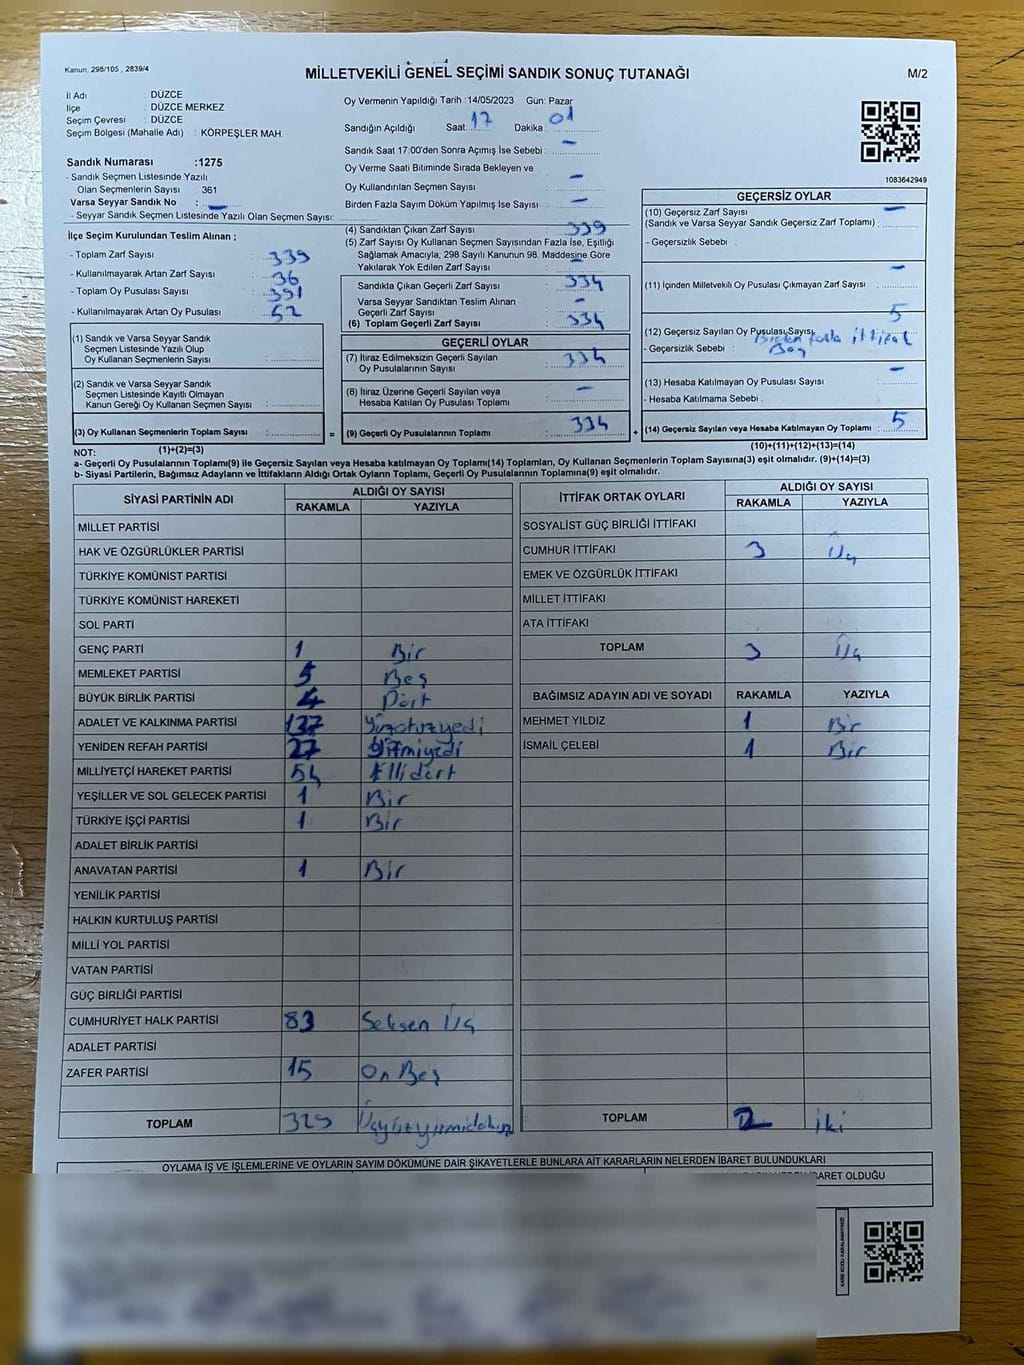 Kanun: 298/105 , 2839/4
MİLLETVEKİLİ GENEL SEÇİMİ SANDIK SONUÇ TUTANAĞI
M/2
İl Adı : DÜZCE
İlçe : DÜZCE MERKEZ
Seçim Çevresi : DÜZCE
Seçim Bölgesi (Mahalle Adı) : KÖRPEŞLER MAH
Sandık Numarası :1275
- Sandık Seçmen Listesinde Yazılı
Olan Seçmenlerin Sayısı : 361
Varsa Seyyar Sandık No : -
- Seyyar Sandık Seçmen Listesinde Yazılı Olan Seçmen Sayısı:
Oy Vermenin Yapıldığı Tarih :14/05/2023 Gün: Pazar
Sandığın Açıldığı Saat: 17 Dakika : 01
Sandık Saat 17:00'den Sonra Açımış İse Sebebi : -
Oy Verme Saati Bitiminde Sırada Bekleyen ve
Oy Kullandırılan Seçmen Sayısı : -
Birden Fazla Sayım Döküm Yapılmış İse Sayısı : -
1083642949
İlçe Seçim Kurulundan Teslim Alınan ;
- Toplam Zarf Sayısı : 339
- Kullanılmayarak Artan Zarf Sayısı : 36
- Toplam Oy Pusulası Sayısı : 391
- Kullanılmayarak Artan Oy Pusulası : 52
(1) Sandık ve Varsa Seyyar Sandık
Seçmen Listesinde Yazılı Olup
Oy Kullanan Seçmenlerin Sayısı :
(2) Sandık ve Varsa Seyyar Sandık
Seçmen Listesinde Kayıtlı Olmayan
Kanun Gereği Oy Kullanan Seçmen Sayısı :
(3) Oy Kullanan Seçmenlerin Toplam Sayısı :
(1)+(2)=(3)
(4) Sandıktan Çıkan Zarf Sayısı : 339
(5) Zarf Sayısı Oy Kullanan Seçmen Sayısından Fazla İse, Eşitliği
Sağlamak Amacıyla; 298 Sayılı Kanunun 98. Maddesine Göre
Yakılarak Yok Edilen Zarf Sayısı : -
Sandıkta Çıkan Geçerli Zarf Sayısı : 334
Varsa Seyyar Sandıktan Teslim Alınan
Geçerli Zarf Sayısı : -
(6) Toplam Geçerli Zarf Sayısı : 334
GEÇERLİ OYLAR
(7) İtiraz Edilmeksizin Geçerli Sayılan
Oy Pusulalarının Sayısı : 334
(8) İtiraz Üzerine Geçerli Sayılan veya
Hesaba Katılan Oy Pusulası Toplamı : -
= (9) Geçerli Oy Pusulalarının Toplamı : 334
GEÇERSİZ OYLAR
(10) Geçersiz Zarf Sayısı -
(Sandık ve Varsa Seyyar Sandık Geçersiz Zarf Toplamı) :
- Geçersizlik Sebebi :
(11) İçinden Milletvekili Oy Pusulası Çıkmayan Zarf Sayısı : -
(12) Geçersiz Sayılan Oy Pusulası Sayısı : 5
- Geçersizlik Sebebi : Birden fazla ittifak
(13) Hesaba Katılmayan Oy Pusulası Sayısı : -
- Hesaba Katılmama Sebebi .
+ (14) Geçersiz Sayılan veya Hesaba Katılmayan Oy Toplamı : 5
(10)+(11)+(12)+(13)=(14)
NOT:
a- Geçerli Oy Pusulalarının Toplamı(9) ile Geçersiz Sayılan veya Hesaba katılmayan Oy Toplamı(14) Toplamları, Oy Kullanan Seçmenlerin Toplam Sayısına(3) eşit olmalıdır. (9)+(14)=(3)
b- Siyasi Partilerin, Bağımsız Adayların ve İttifakların Aldığı Ortak Oyların Toplamı, Geçerli Oy Pusulalarının Toplamına(9) eşit olmalıdır.
SİYASİ PARTİNİN ADI
ALDIĞI OY SAYISI
RAKAMLA YAZIYLA
MİLLET PARTİSİ
HAK VE ÖZGÜRLÜKLER PARTİSİ
TÜRKİYE KOMÜNİST PARTİSİ
TÜRKİYE KOMÜNİST HAREKETİ
SOL PARTİ
GENÇ PARTİ 1 Bir
MEMLEKET PARTİSİ 5 Beş
BÜYÜK BİRLİK PARTİSİ 4 Dört
ADALET VE KALKINMA PARTİSİ 137 Yüzotuzyedi
YENİDEN REFAH PARTİSİ 27 Yirmiyedi
MİLLİYETÇİ HAREKET PARTİSİ 54 Ellidört
YEŞİLLER VE SOL GELECEK PARTİSİ 1 Bir
TÜRKİYE İŞÇİ PARTİSİ 1 Bir
ADALET BİRLİK PARTİSİ
ANAVATAN PARTİSİ 1 Bir
YENİLİK PARTİSİ
HALKIN KURTULUŞ PARTİSİ
MİLLİ YOL PARTİSİ
VATAN PARTİSİ
GÜÇ BİRLİĞİ PARTİSİ
CUMHURİYET HALK PARTİSİ 83 Seksen Üç
ADALET PARTİSİ
ZAFER PARTİSİ 15 On Beş
TOPLAM 329 Üçyüzyirmidokuz
İTTİFAK ORTAK OYLARI
ALDIĞI OY SAYISI
RAKAMLA YAZIYLA
SOSYALİST GÜÇ BİRLİĞİ İTTİFAKI
CUMHUR İTTİFAKI 3 Üç
EMEK VE ÖZGÜRLÜK İTTİFAKI
MİLLET İTTİFAKI
ATA İTTİFAKI
TOPLAM 3 Üç
BAĞIMSIZ ADAYIN ADI VE SOYADI RAKAMLA YAZIYLA
MEHMET YILDIZ 1 Bir
İSMAİL ÇELEBİ 1 Bir
TOPLAM 2 iki
OYLAMA İŞ VE İŞLEMLERİNE VE OYLARIN SAYIM DÖKÜMÜNE DAİR ŞİKAYETLERLE BUNLARA AİT KARARLARIN NELERDEN İBARET BULUNDUKLARI
OLDUĞU
KARE KODU KARALAMAYINIZ!